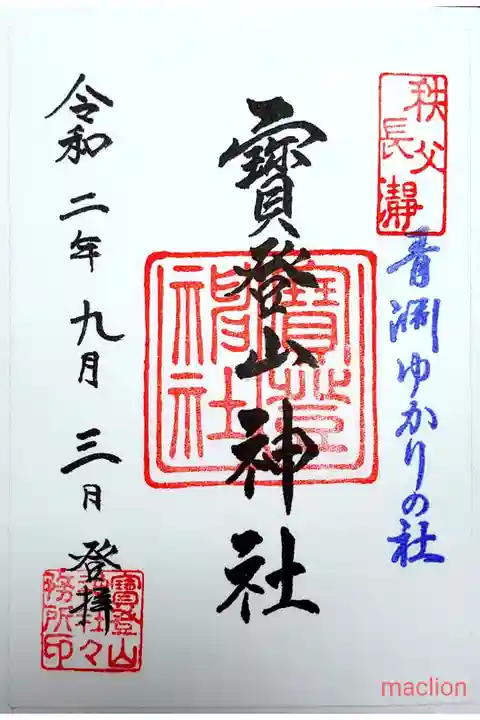 秩父
長瀞
青淵ゆかりの社
寳登山神社
寳登
神社
令和二年九月三日 登拝
寳登山
神社々
務所印
maclion